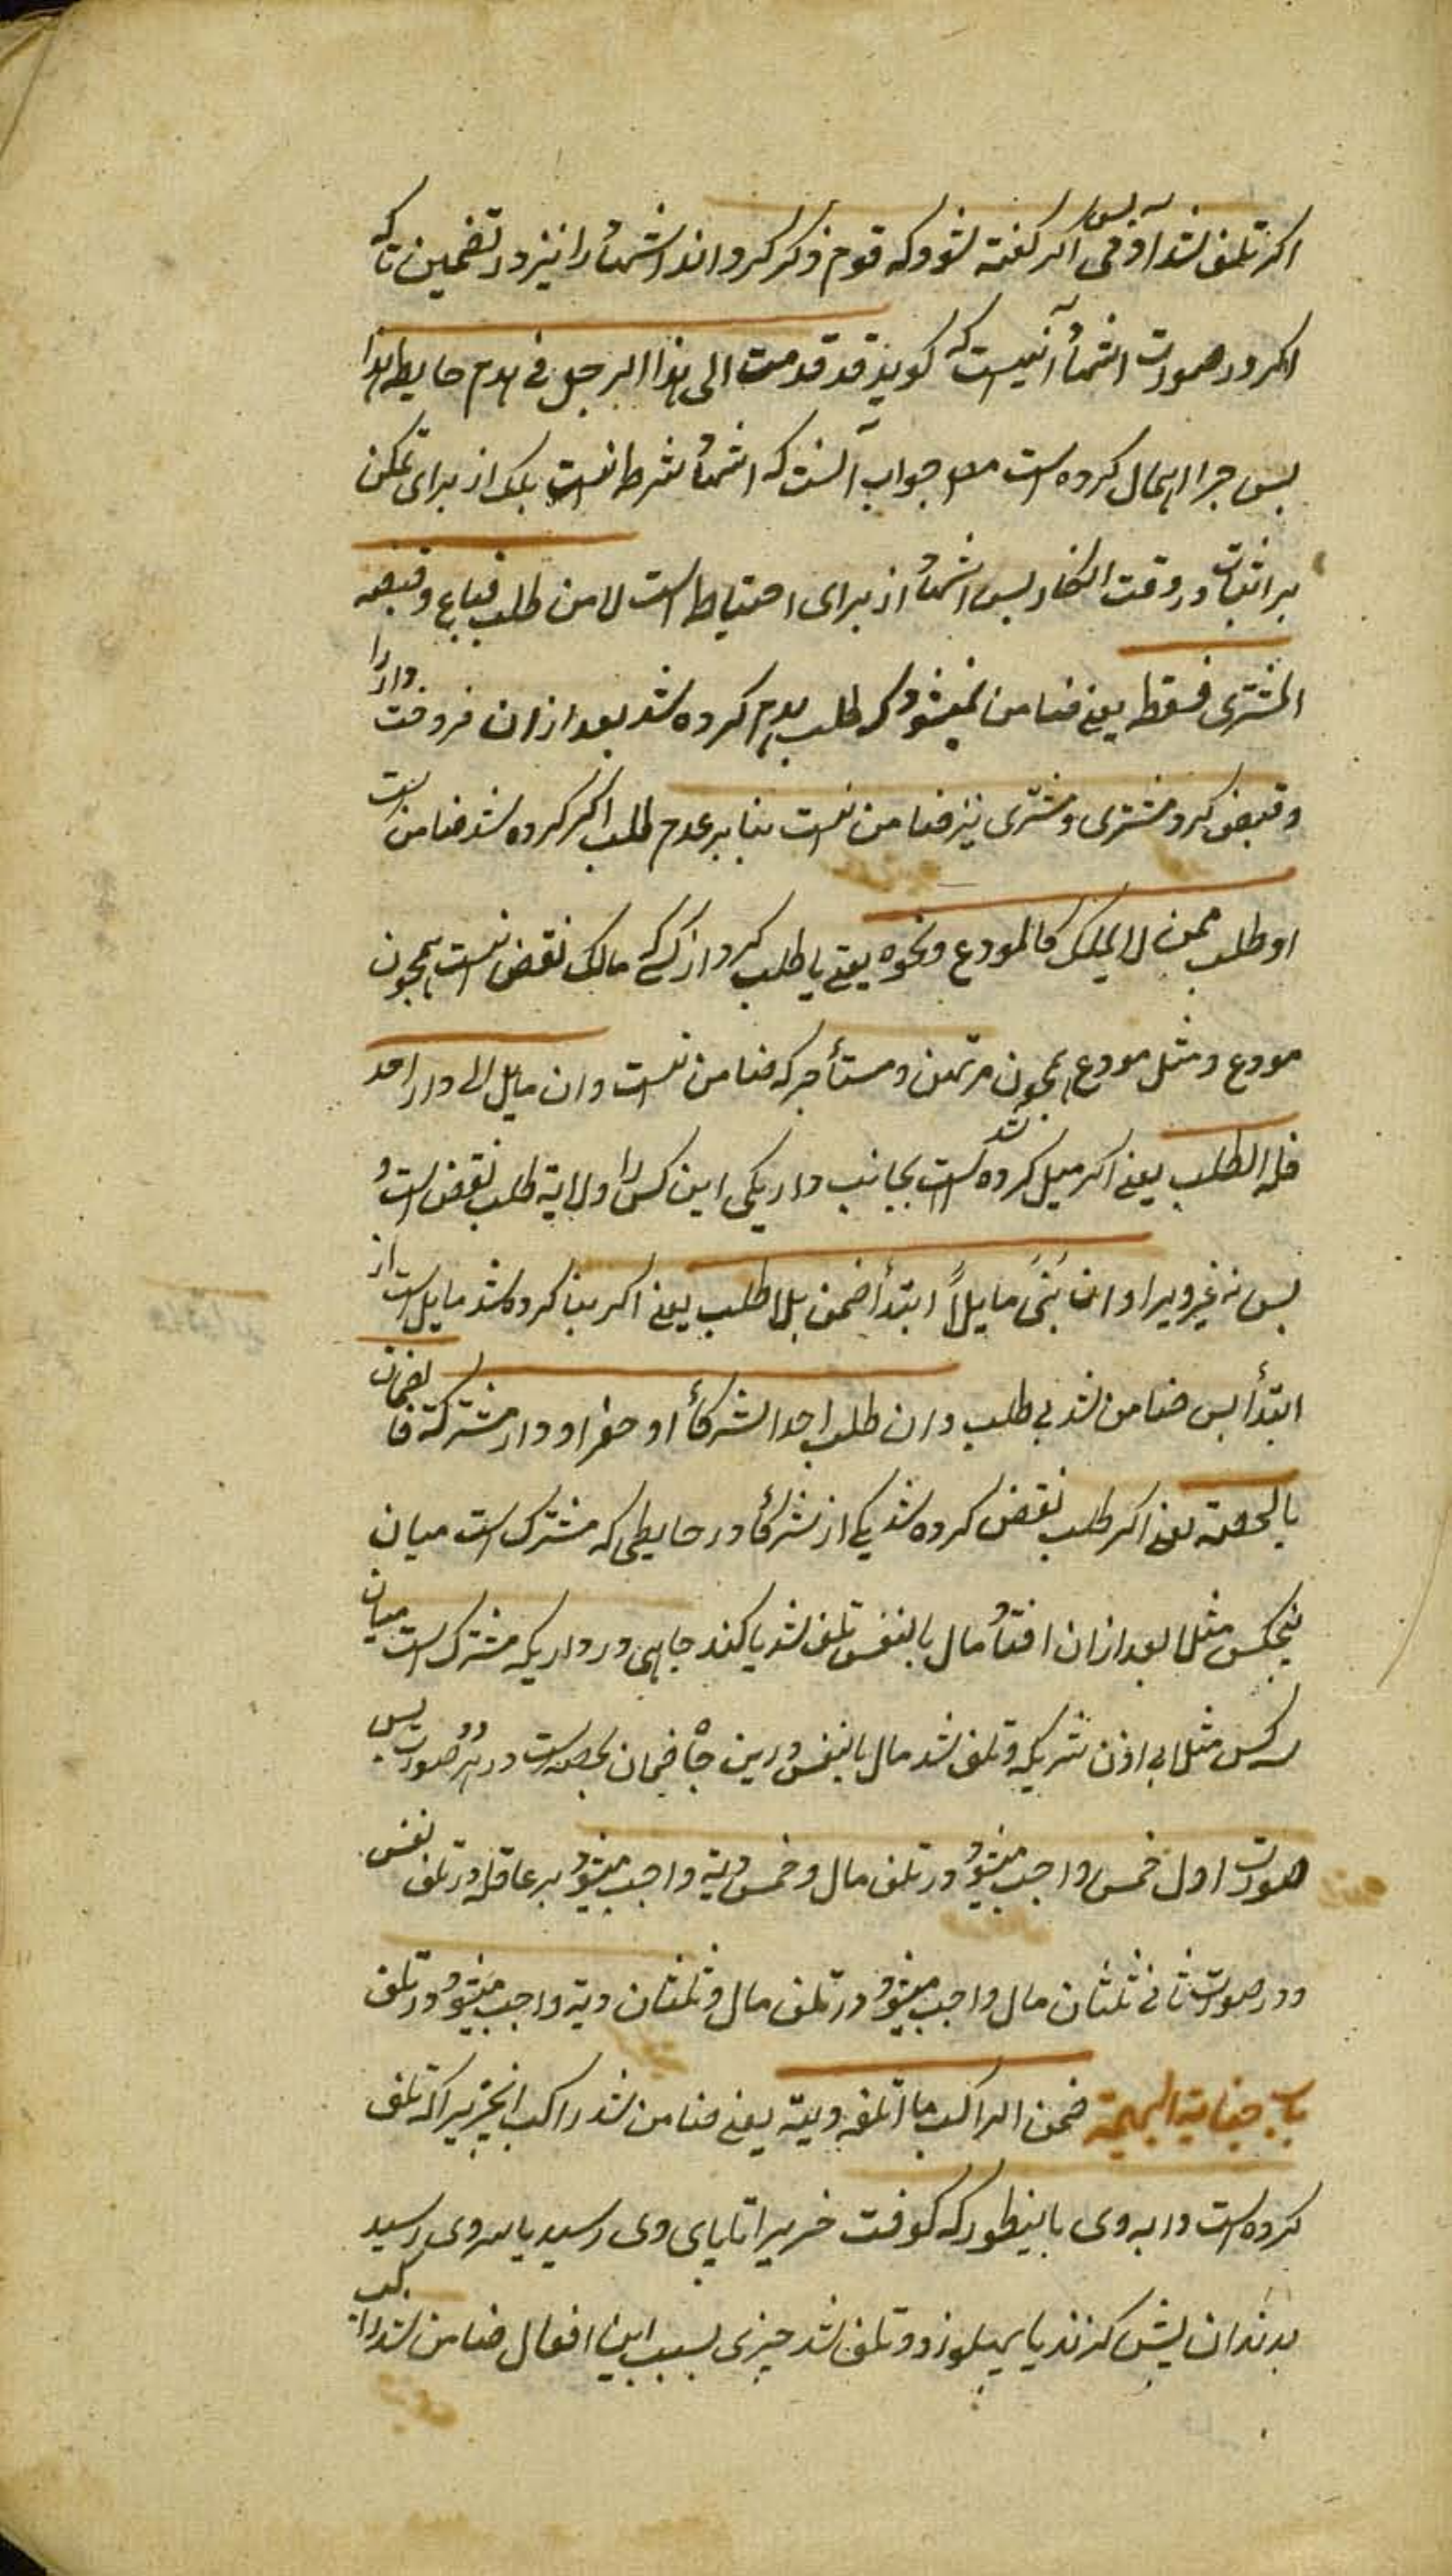 اکر تلف شد آدمی پس اکر کفته شود که قوم ذکر کرده‌اند اشهاد را نیز در تضمین تا که
اکر در صورت اشهاد آنیست که کوید قد قدمت الی هذا الرجل فی هدم حایطه هذا
پس چرا اهمال کرده است جواب آنست که اشهاد شرط نیست بلک از برای تمکن
بر اثبات در وقت انکار پس اشهاد از برای احتیاط است لا من طلب فباع وقبضه
المشتری فسقط یعنی ضامن نمیشود که طلب هدم کرده شد بعد ازان فروخت دار را
وقبض کرد مشتری و مشتری نیز ضامن نیست بنا بر عدم طلب اکر کرده شد ضامن است
او طلب ممن لا یملک کالمودع ونحوه یعنی یا طلب کرد از کسی که مالک نقض نیست همچون
مودع و مثل مودع همچون مرتهن و مستأجر که ضامن نیست وان مایل الی دار احد
فله الطلب یعنی اکر میل کرده شد است بجانب دار یکی این کس را ولایة طلب نقض است و
پس نه غیر ویرا وان بنی مایلاً ابتدأ ضمن بلا طلب یعنی اکر بنا کرده شد مایل است از
ابتدأ پس ضامن شد بی طلب وان طلب احد الشرکأ او حفر او دار مشترکة فالضمان
بالحصة یعنی اکر طلب نقض کرده شد یکی از شرکأ در حایطی که مشترک است میان
پنجکس مثلا بعد ازان افتاد مال یا نفس تلف شد یا کند چاهی در داریکه مشترک است میان
سه کس مثلا بی اذن شریکه و تلف شد مال یا نفس درین جا ضمان بحصه است در هر دو صورت پس
صورت اول خمس واجب میشود در تلف مال و خمس دیة واجب میشود بر عاقله در تلف نفس
و در صورت ثانی ثلثان مال واجب میشود در تلف مال و ثلثان دیة واجب میشود در تلف
باب جنایة البهیمة ضمن الراکب ما اتلفه دابته یعنی ضامن شد راکب انچیزیرا که تلف
کرده است دابه وی باینطور که کوفت چیزیرا تا پای وی رسید یا سر وی رسید
بدندان پیش کزند یا پهلو زد و تلف شد چیزی بسبب این افعال ضامن شد راکب